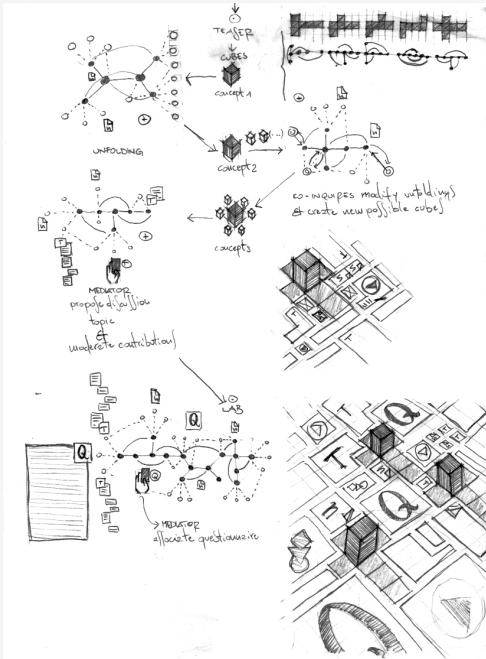 TEASER
CUBES
concept 1
UNFOLDING
concept 2
(...)
CO-INQUIRES modify unfoldings
& create new possible cubes
concept 3
MEDIATOR
propose discussion
topic
&
moderate contributions
LAB
Q
Q
MEDIATOR
associate questionnaire
Q
T
Q
T